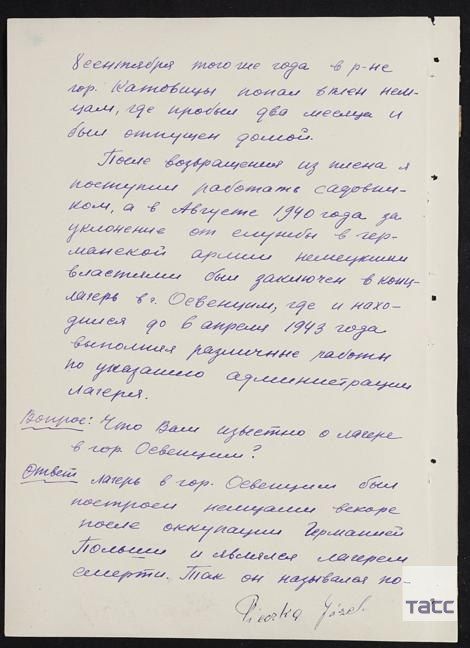 8 сентября того же года в р-не
гор. Катовицы попал в плен нем-
цам, где пробыл два месяца и
был отпущен домой.
После возвращения из плена я
поступил работать садовни-
ком, а в Августе 1940 года за
уклонение от службы в гер-
манской армии немецкими
властями был заключен в конц-
лагерь в г. Освенцим, где и нахо-
дился до 6 апреля 1943 года
выполняя различные работы
по указанию администрации
лагеря.
Вопрос: Что Вам известно о лагере
в гор. Освенцим?
Ответ лагерь в гор. Освенцим был
построен немцами вскоре
после оккупации Германией
Польши и являлся лагерем
смерти. Так он назывался по-
Pieczka Józef
ТАСС